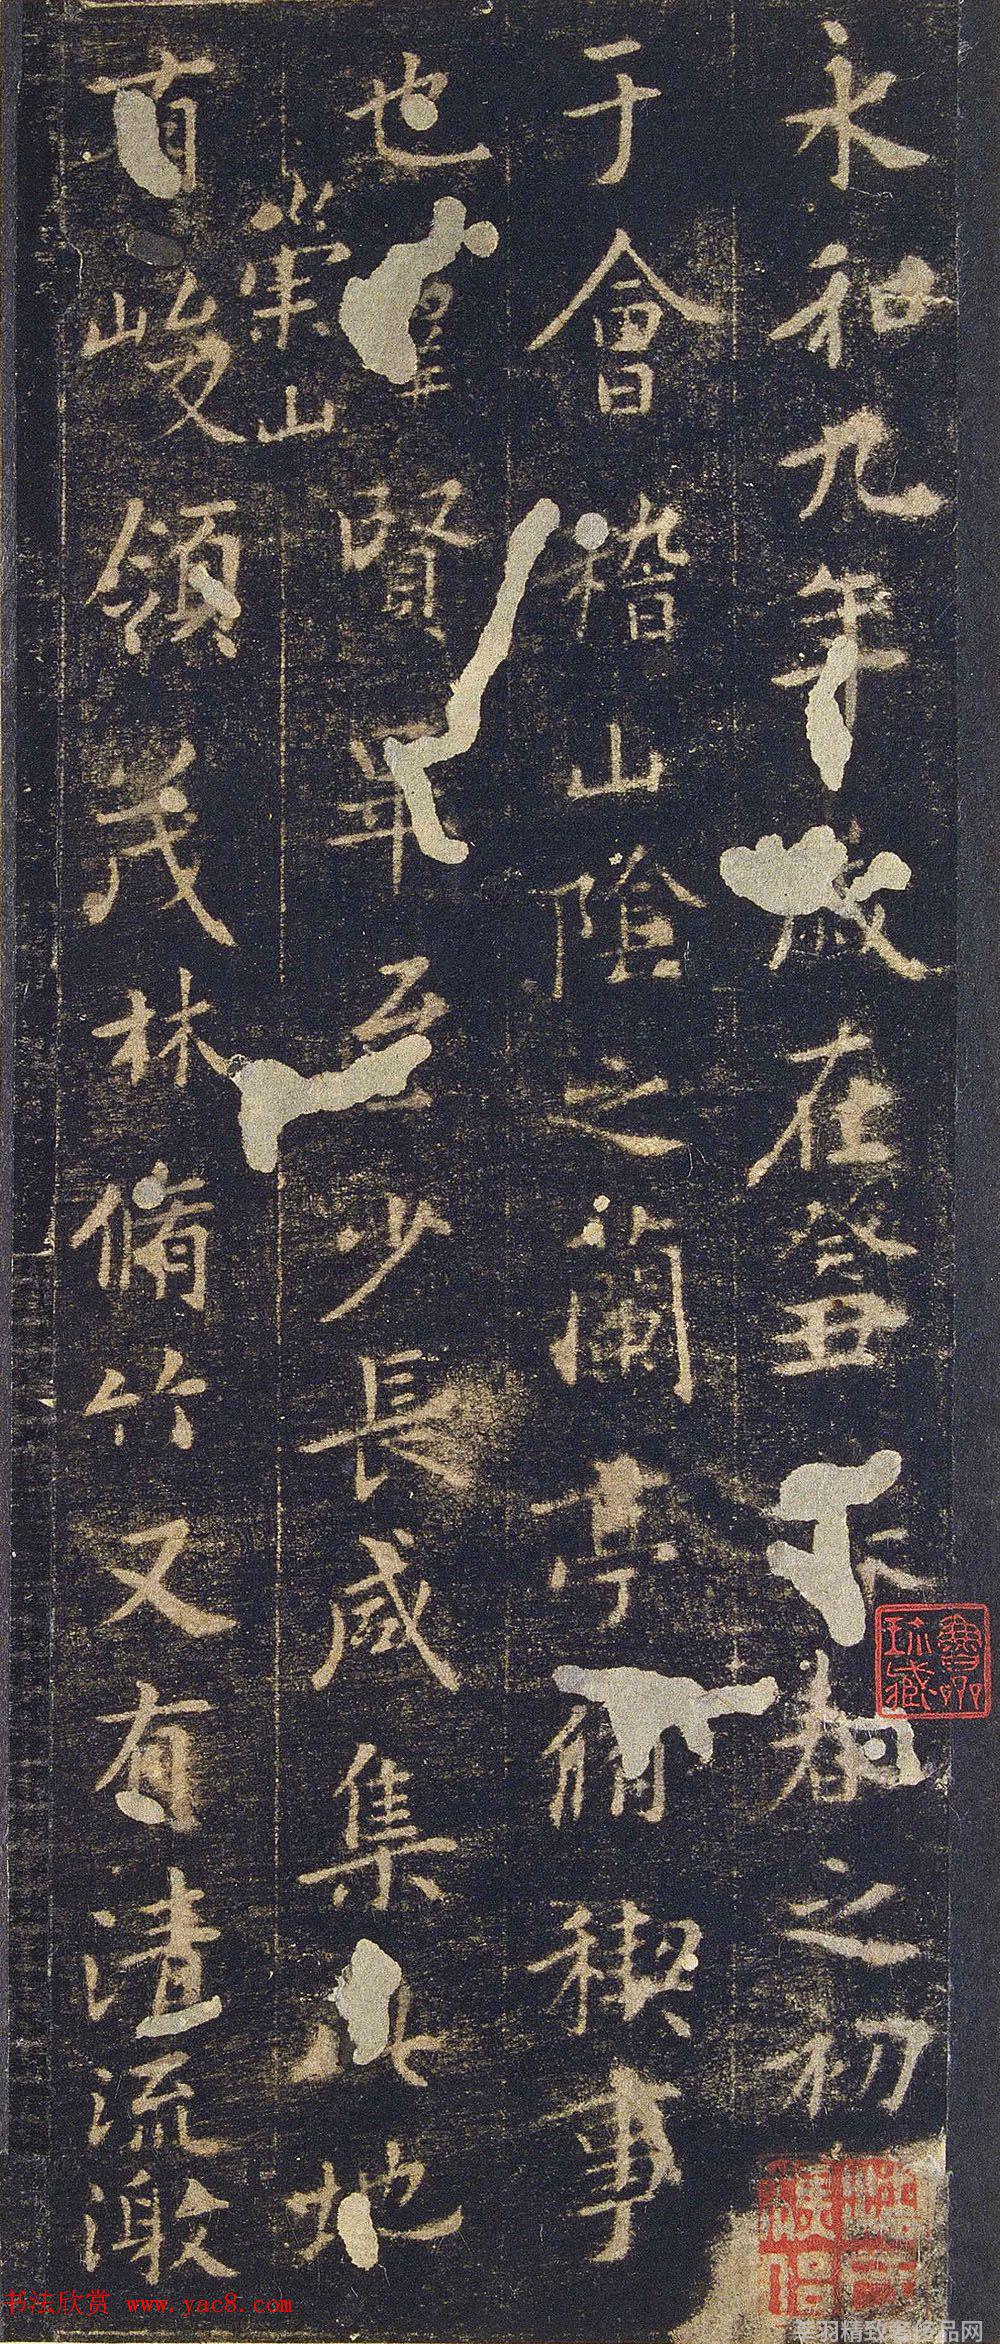 永和九年歲在癸丑春之初
于會稽山陰之蘭亭脩稧事
也羣賢畢至少長咸集此地
崇山
有峻領茂林脩竹又有清流激
书法欣赏 www.yac8.com